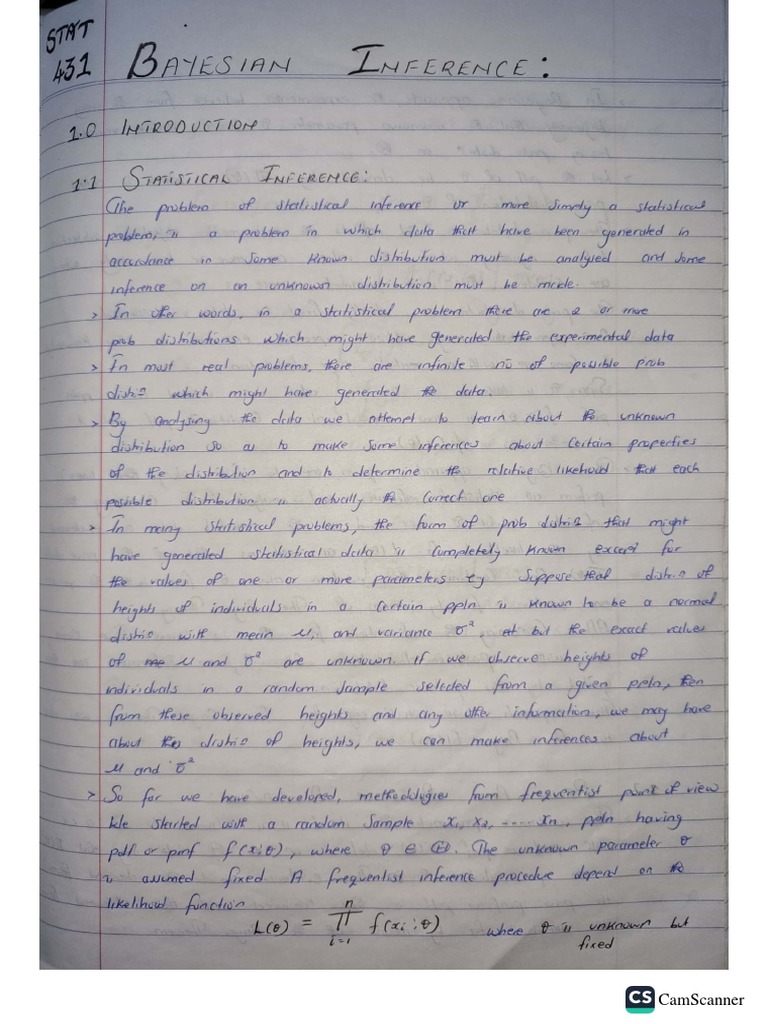 STAT
431
BAYESIAN INFERENCE:
1.0 INTRODUCTION
1.1 STATISTICAL INFERENCE:
The problem of statistical inference or more simply a statistical
problem, is a problem in which data that have been generated in
accordance in some known distribution must be analysed and some
inference on an unknown distribution must be made.
> In other words, in a statistical problem there are 2 or more
prob distributions which might have generated the experimental data
> In most real problems, there are infinite no of possible prob
distns which might have generated the data.
> By analysing the data we attempt to learn about the unknown
distribution so as to make some inferences about certain properties
of the distribution and to determine the relative likehood that each
possible distribution is actually the correct one
> In many statistical problems, the form of prob distns that might
have generated statistical data is completely known except for
the values of one or more parameters eg Suppose that distn of
heights of individuals in a certain ppln is known to be a normal
distn with mean μ, and variance σ², but the exact values
of μ and σ² are unknown. if we observe heights of
individuals in a random sample selected from a given ppln, then
from these observed heights and any other information, we may have
about the distn of heights, we can make inferences about
μ and σ²
> So far we have developed, methodologies from frequentist point of view
We started with a random sample x₁, x₂, ..... xn, ppln having
pdf or pmf f(x;θ), where θ ∈ Θ. The unknown parameter θ
is assumed fixed A frequentist inference procedure depend on the
likelihood function
L(θ) = ∏ⁿᵢ₌₁ f(xi;θ) where θ is unknown but
fixed
CS CamScanner